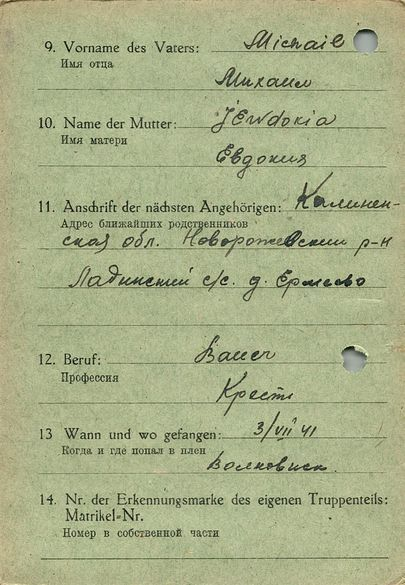 9. Vorname des Vaters: Michail
Имя отца
Михаил
10. Name der Mutter: JEwdokia
Имя матери
Евдокия
11. Anschrift der nächsten Angehörigen: Калинин-
Адрес ближайших родственников
ская обл. Новоржевский р-н
Ладинский с/с. д. Ермево
12. Beruf: Bauer
Профессия
Крест.
13 Wann und wo gefangen: 3/VII 41
Когда и где попал в плен
Волковиск.
14. Nr. der Erkennungsmarke des eigenen Truppenteils:
Matrikel-Nr.
Номер в собственной части